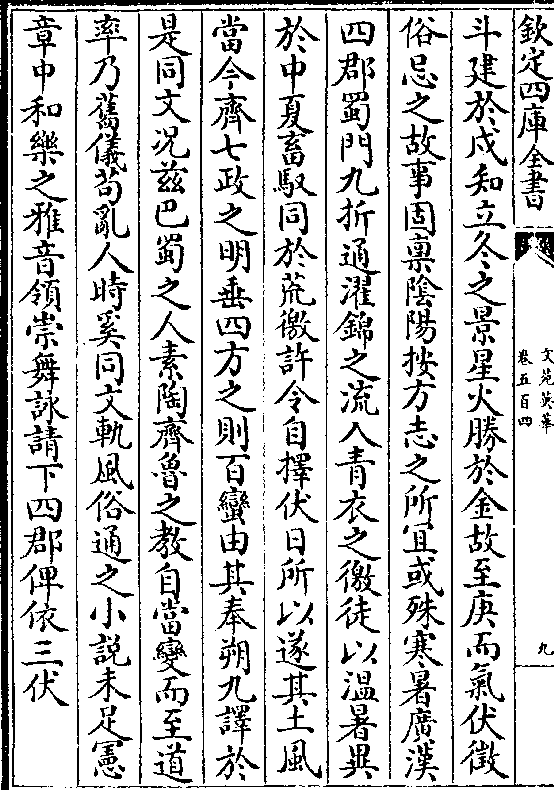 欽定四庫全書
文苑英華
卷五百四
九
斗建於戌知立冬之景星火勝於金故至庚而氣伏徵
俗忌之故事固稟陰陽按方志之所宜或殊寒暑廣漢
四郡蜀門九折通濯錦之流人青衣之徼徒以溫暑異
於中夏畜馭同於荒徼許令自擇伏日所以遂其土風
當今齊七政之明垂四方之則百蠻由其奉朔九譯於
是同文況茲巴蜀之人素陶齊魯之教自當變而至道
率乃舊儀苟亂人時奚同文軌風俗通之小說未足憲
章中和樂之雅音領崇舞詠請下四郡俾依三伏